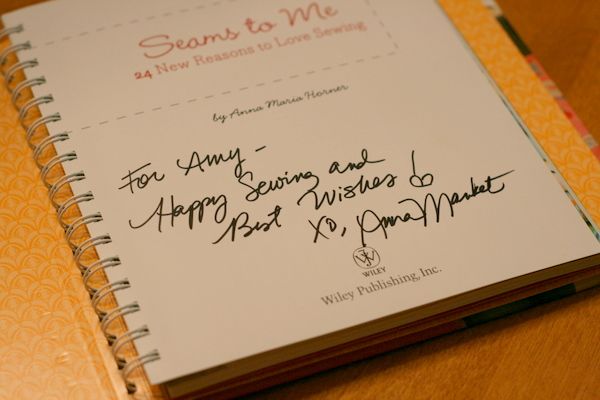 Seams to Me
24 New Reasons to Love Sewing
by Anna Maria Horner
For Amy –
Happy Sewing and
Best Wishes!
XO, Anna
WILEY
Wiley Publishing, Inc.